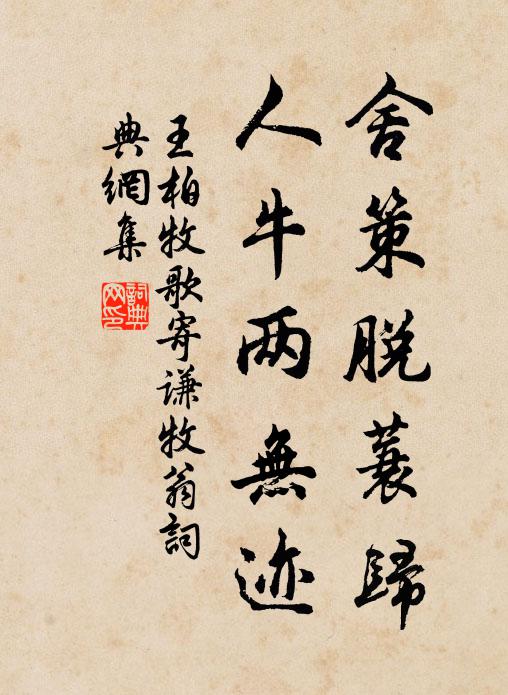 舍策脱蓑歸
人牛两無迹
王柏牧歌寄谦牧翁詞
典網集
詞典
网印